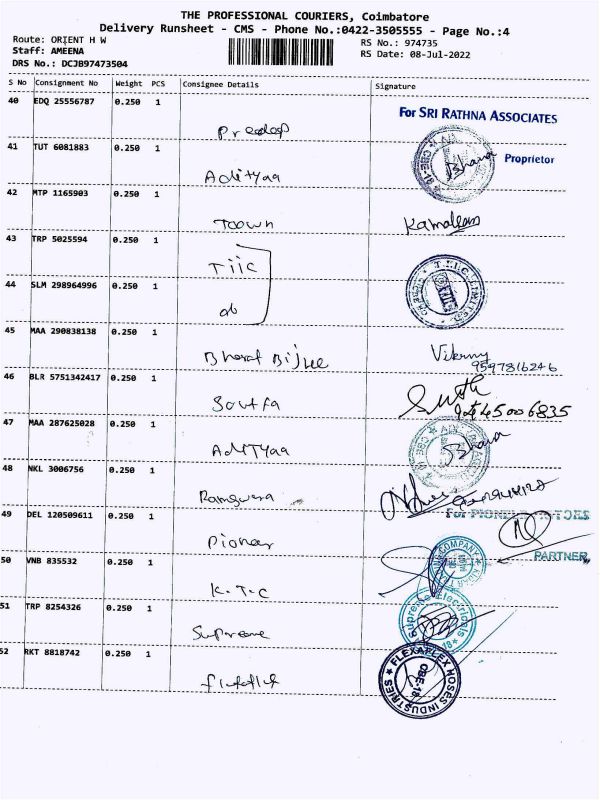 THE PROFESSIONAL COURIERS, Coimbatore
Delivery Runsheet - CMS - Phone No.:0422-3505555 - Page No.:4
Route: ORIENT H W
RS No.: 974735
Staff: AMEENA
RS Date: 08-Jul-2022
DRS No.: DCJB97473504
S No Consignment No Weight PCS Consignee Details Signature
40 EDQ 25556787 0.250 1
For SRI RATHNA ASSOCIATES
Pradeep
41 TUT 6081883 0.250 1
Bhava
Proprietor
Adityaa
42 MTP 1165903 0.250 1
Toown
43 TRP 5025594 0.250 1
TIIC
T.I.I.C. LIMITED
44 SLM 298964996 0.250 1
do
45 MAA 290838138 0.250 1
Bharat Bijlee
9597816246
46 BLR 5751342417 0.250 1
9445006835
47 MAA 287625028 0.250 1
Adityaa
Bhava
48 NKL 3006756 0.250 1
49 DEL 120509611 0.250 1
For PIONEER MOTORS
Pioneer
PARTNER
50 VNB 835532 0.250 1
K.T.C
51 TRP 8254326 0.250 1
Supreme Electricals
Supreme
52 RKT 8818742 0.250 1
FLEXAFLEX HOSES INDUSTRIES
CBE-18